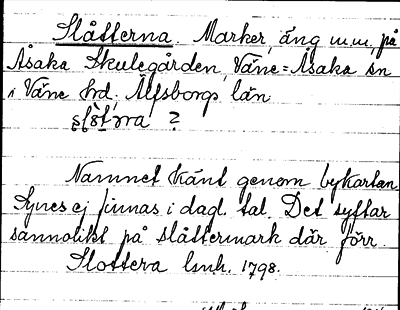 Slåtterna. Marker, äng m.m., på
Åsaka Skulegården, Väne=Åsaka sn
i Väne hd. Älfsborgs län
?
Namnet känt genom bykartan
Synes ej finnas i dagl. tal. Det syftar
sannolikt på slåttermark där förr.
Slottera lsnh. 1798.